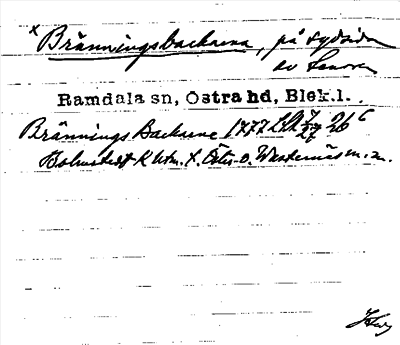 x Bränningsbackarne, på sydsidan
av Senoren
Ramdala sn, Östra hd, Blek.l.
Brännings Backarne 1777 LSA 26 c
Holmstedt K utm. t. Öster o. Westernäs m.m.